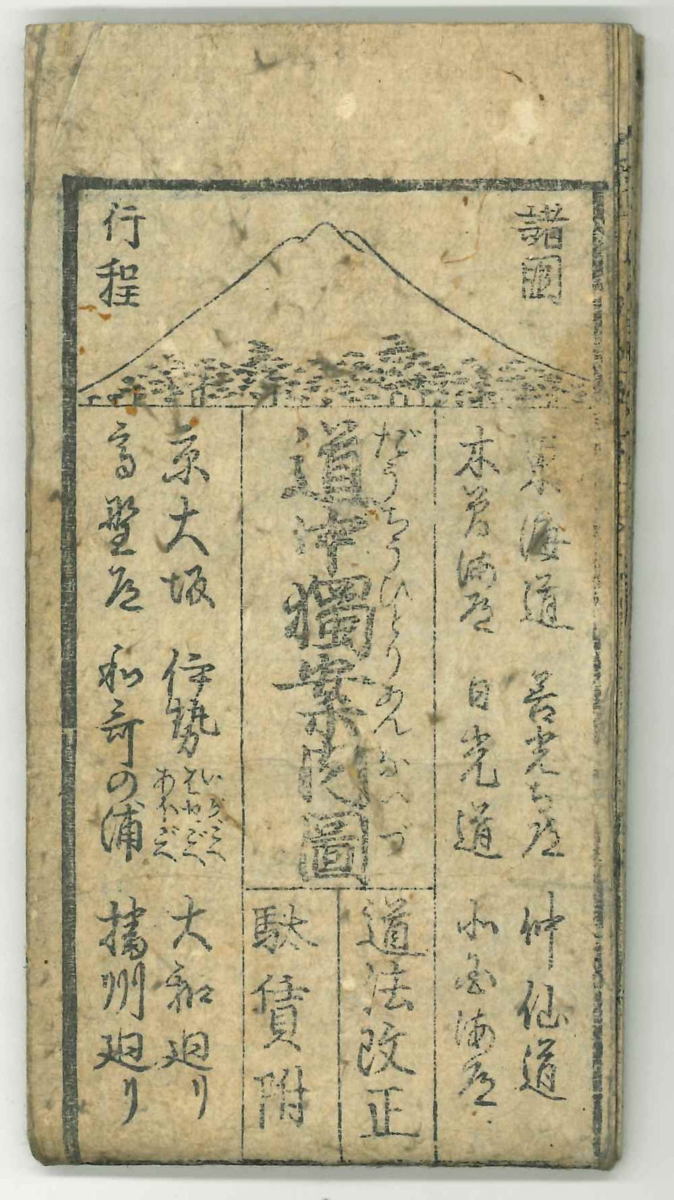 諸國
行程
東海道 善光寺道 仲仙道
木曽海道 日光道 海道
だうちうひとりあんないづ
道中獨案内圖
道法改正
駄賃附
京大坂 伊勢 いがごへ はせごへ あをごへ 大和廻り
高野道 和哥の浦 播州廻り